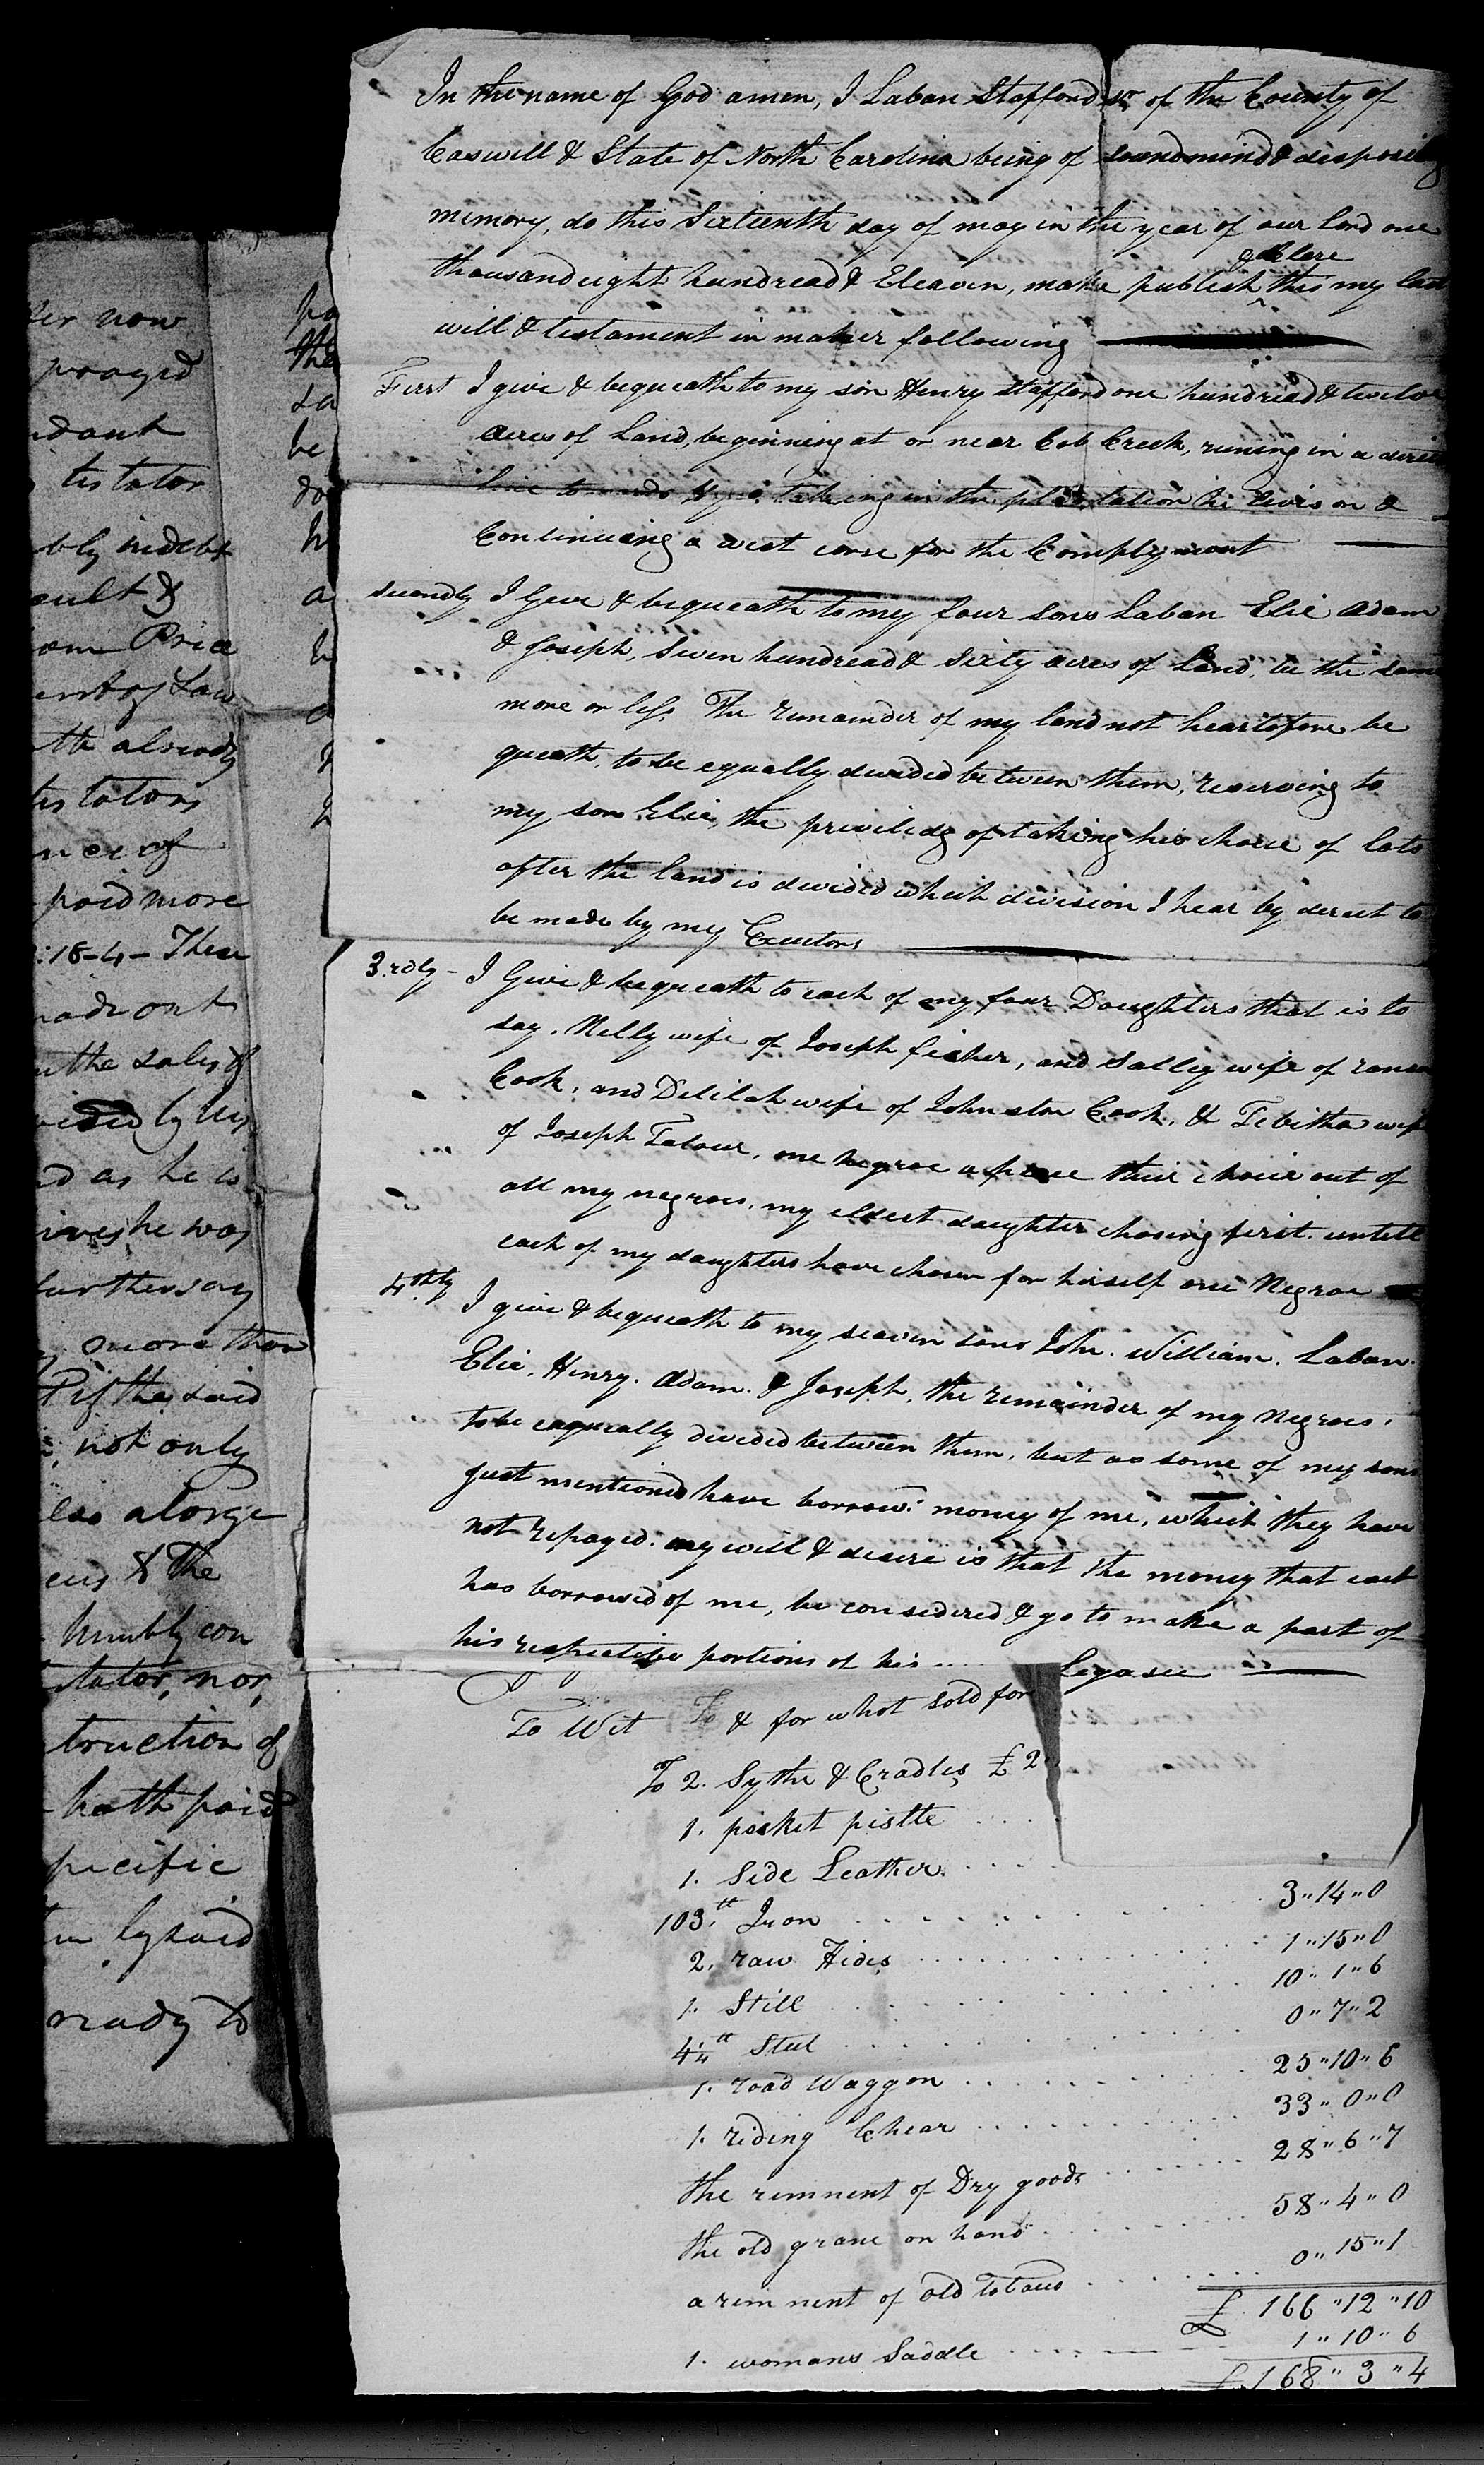 In the name of God amen, I Laban Stafford Sr of the County of
Caswell & State of North Carolina being of soundmind & disposing
memory, do this Sixteenth day of may in the year of our Lord one
thousand eight hundread & Eleaven, make publish & delare this my last
will & testament in maner following
First I give & bequeath to my son Henry Stafford one hundread & twelve
acres of Land, beginning at or near Cob Creek, runing in a direct
line to taking in the plantation he lives on &
Continueing a west corse for the Complyment
secondly I Geve & bequeath to my four sons Laban Elie Adam
& Joseph, Seven hundread & Sixty acres of Land, be the same
more or less The remainder of my land not heartofore be
queath, to be equally devided between them, reserving to
my son Elie, the priviledg of taking his choice of lots
after the land is devided which division I hear by derect to
be made by my Executors
3.rdly - I Give & bequeath to each of my four Daughters that is to
say, Nelly wife of Joseph fisher, and Salley wife of
Cook, and Delilah wife of Johnston Cook, & Tebitha wife
of Joseph, one negroe a piece their choice out of
all my negroes, my eldest daughter chosing first. untill
each of my daughters have chosen for hirself one Negroe
4.thly I give & bequeath to my seaven sons John. William. Laban.
Elie. Henry. Adam. & Joseph, the remainder of my negroes,
to be eaqually devided between them, but as some of my sons
just mentioned have borrowd money of me, which they have
not repayed: my will & desire is that the money that each
has borrowed of me, be considered & go to make a part of
his respective portions of his Legasee
To Wit To & for what sold for
To 2. Sythe & Cradles £2
1. pocket pistle
1. Side Leather
103.tt Iron 3"14"0
2. raw Hides 1"15"0
1. Still 10"1"6
4 1/4 tt Steel 0"7"2
1. road Waggon 25"10"6
1. riding Chear 33"0"0
the remnent of Dry goods 28"6"7
the old grane on hand 58"4"0
a remnent of old Tobaco 0"15"1
£ 166"12"10
1. womans Saddle 1"10"6
£ 168"3"4
now
prayed
testator
indebt
Price
of Law
already
testators
paid more
:18-4- These
made out
the sales of
by his
as he is
he was
further say
more than
if the said
not only
also a large
& the
humbly con
nor,
truction of
hath paid
pecific
said
ready to